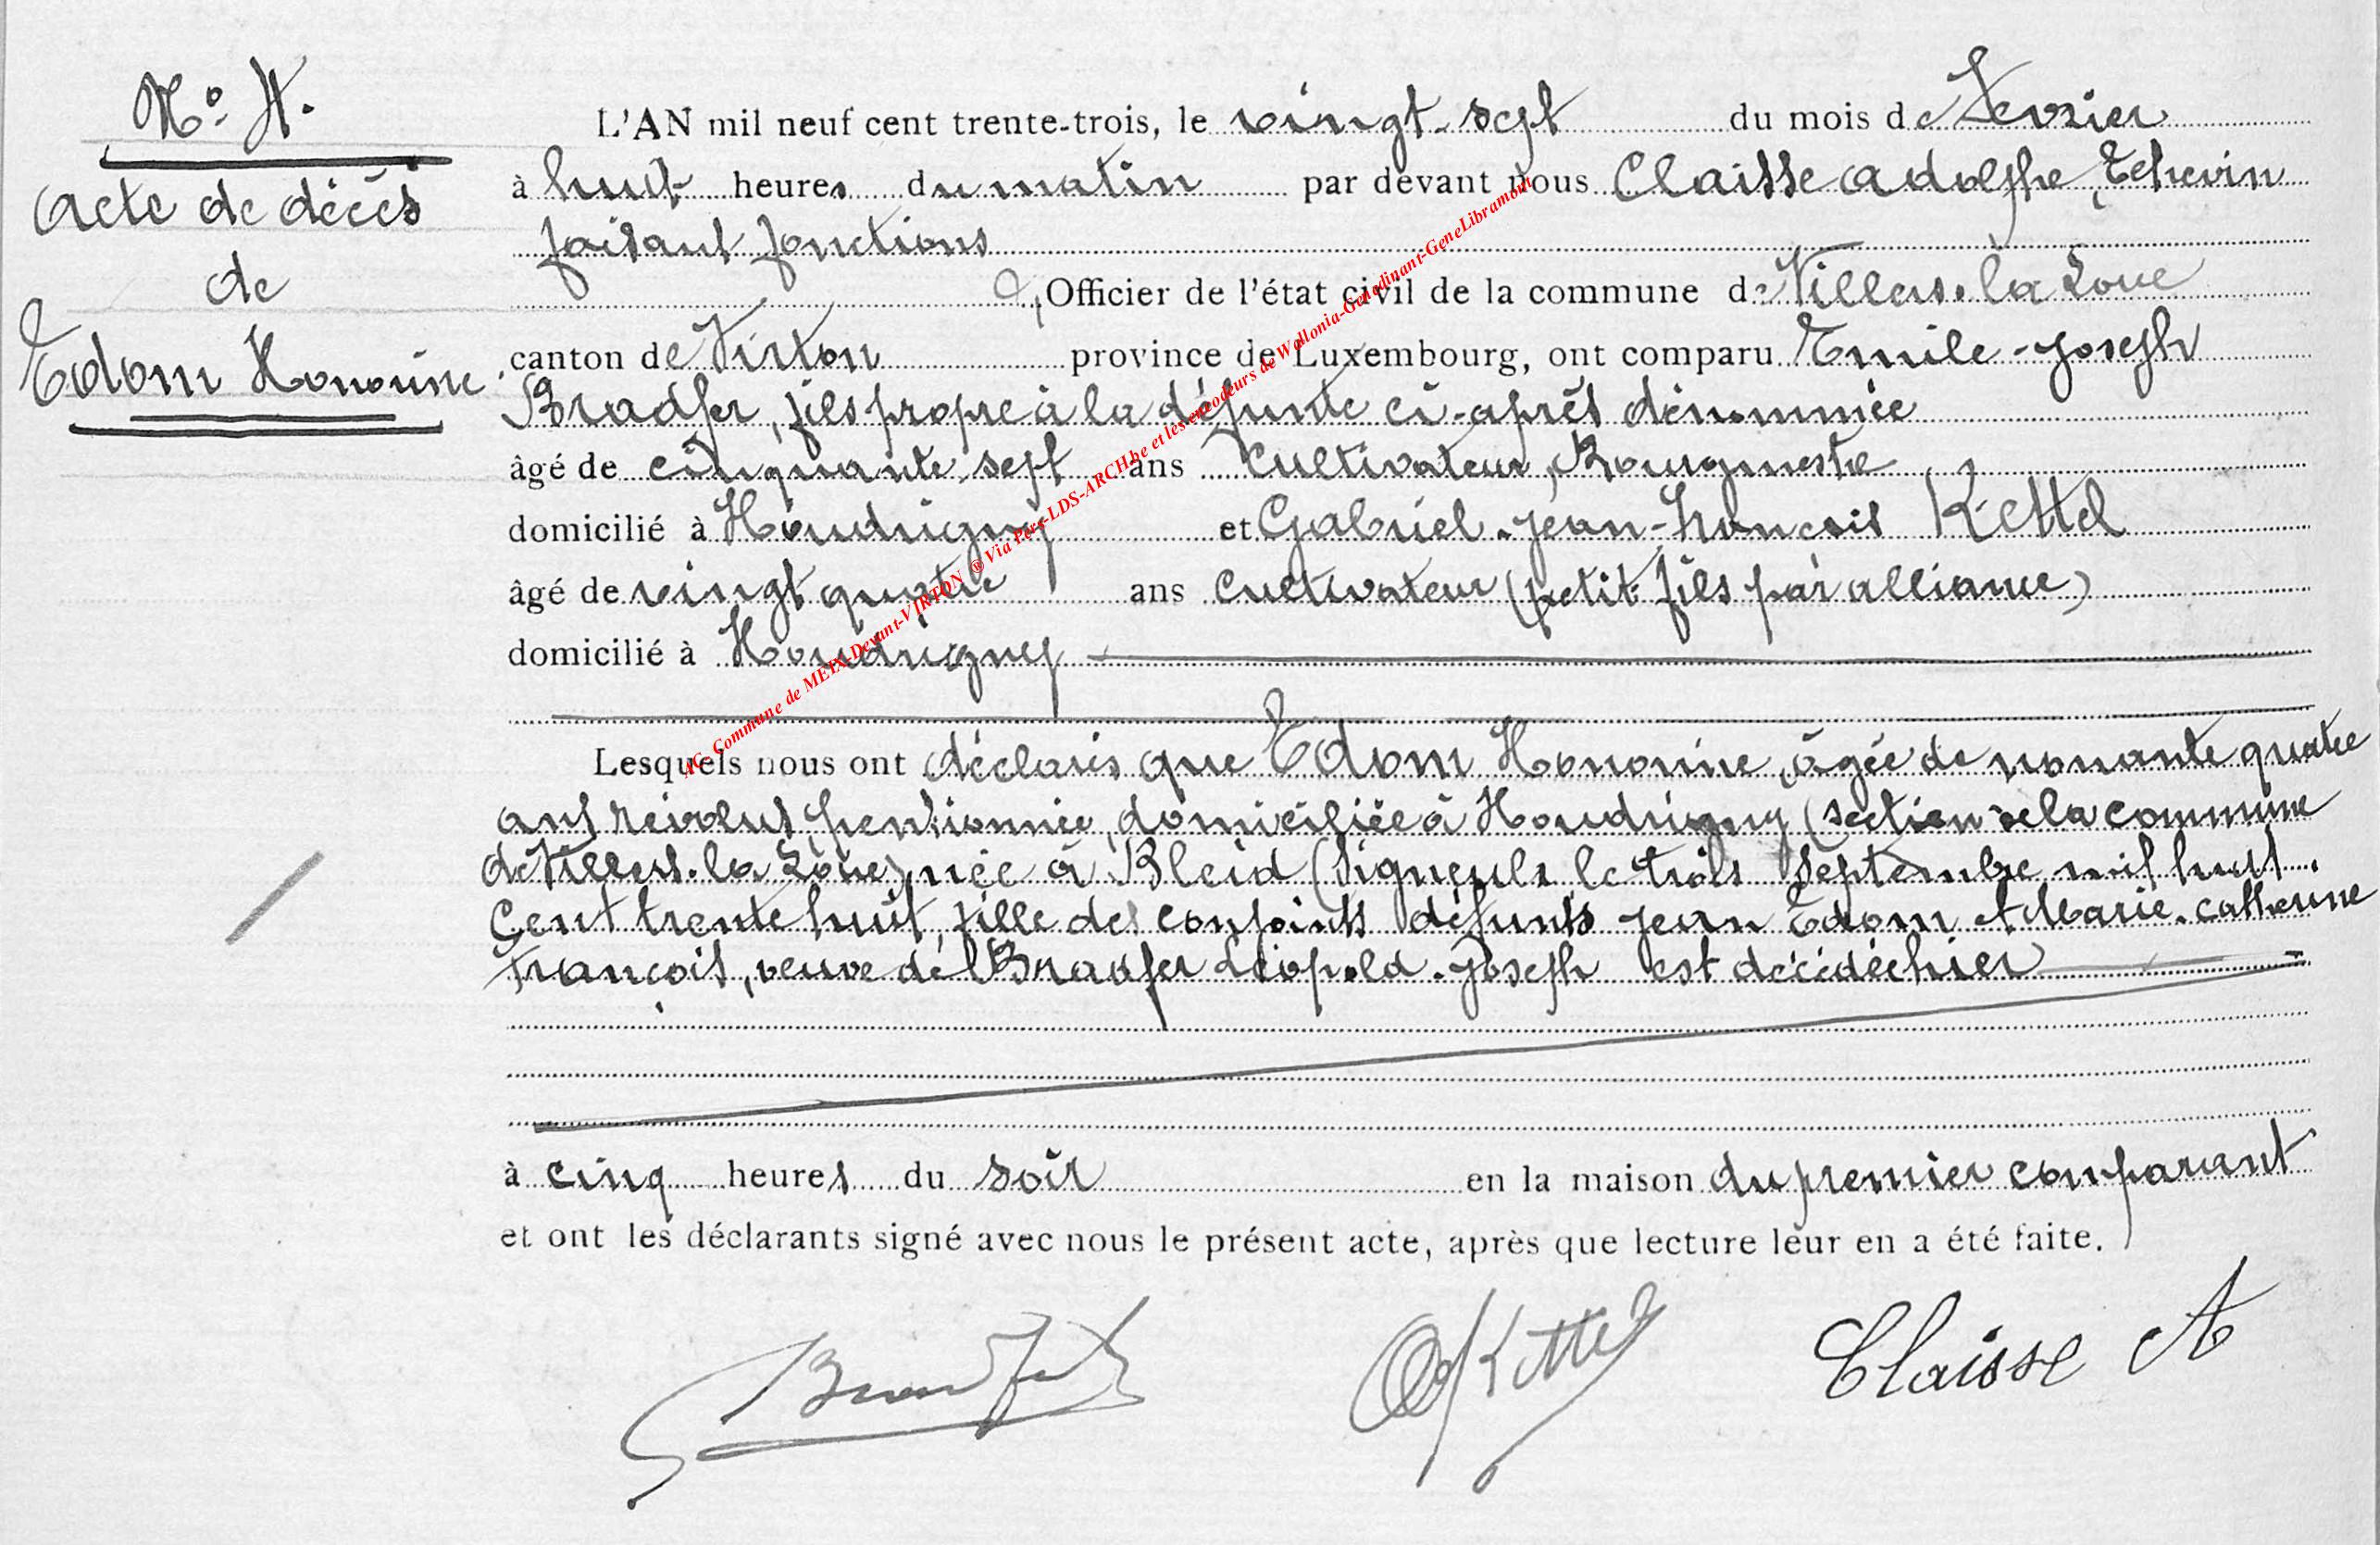 N° 4.
Acte de décès
de
Edom Honorine
L'AN mil neuf cent trente-trois, le vingt-sept du mois de Fevrier
à huit heures du matin par devant nous Claisse Adolphe, Echevin
faisant fonctions
d', Officier de l'état civil de la commune de Villers-la Loue
canton de Virton province de Luxembourg, ont comparu Emile-Joseph
Bradfer, fils propre à la défunte ci-après dénommée
âgé de cinquante sept ans Cultivateur, Bourgmestre
domicilié à Houdrigny et Gabriel-Jean-François Kettel
âgé de vingt quatre ans Cultivateur (petit fils par alliance)
domicilié à Houdrigny
Lesquels nous ont déclarés que Edom Honorine, âgée de nonante quatre
ans révolus, pensionnée, domiciliée à Houdrigny (section de la commune
de Villers-la Loue) née à Bleid (Signeulx le trois Septembre mil huit
Cent trente huit, fille des conjoints défunts Jean Edom et Marie-Catherine
François, veuve de Bradfer Léopold-Joseph est décédée hier
à cinq heures du soir en la maison du premier comparant
et ont les déclarants signé avec nous le présent acte, après que lecture leur en a été faite.
Bradfer Kettel Claisse A
AC- Commune de MEIX-Devant-VIRTON ® Via Pers-LDS-ARCH.be et les encodeurs de Wallonia-Genedinant-GeneLibramont